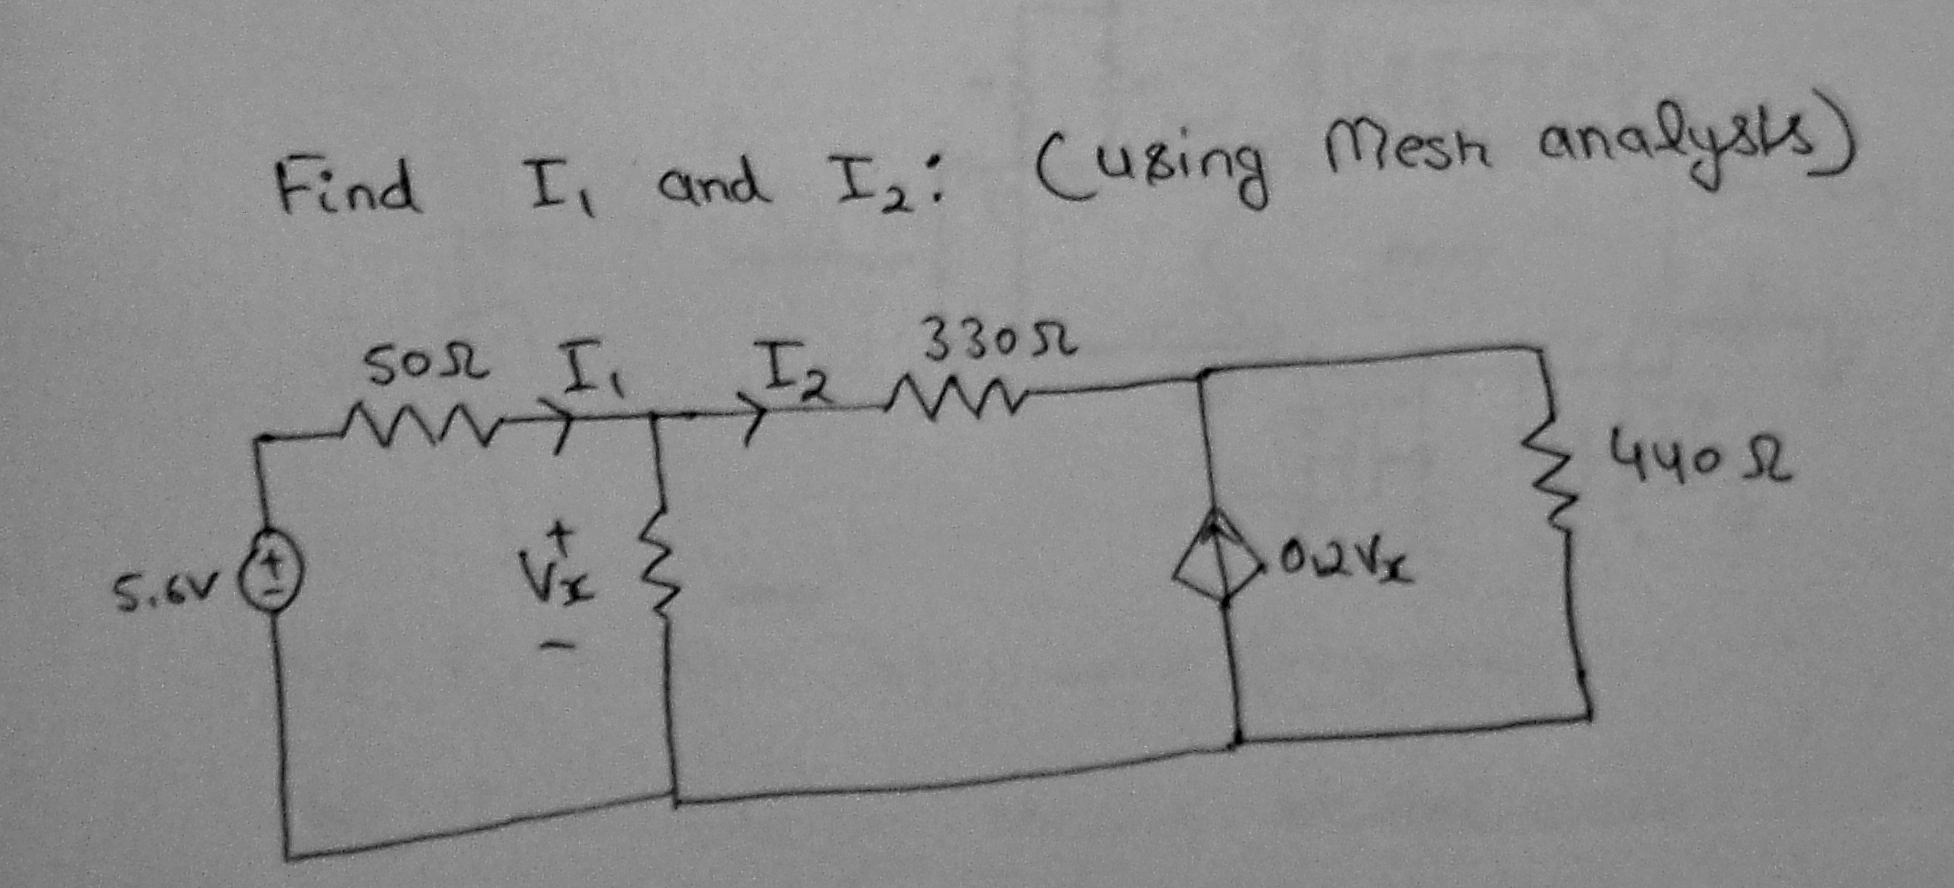 Find I₁ and I₂: (using Mesh analysis)
50Ω I₁ I₂ 330Ω
440Ω
5.6V + - + Vx - 0.2Vx